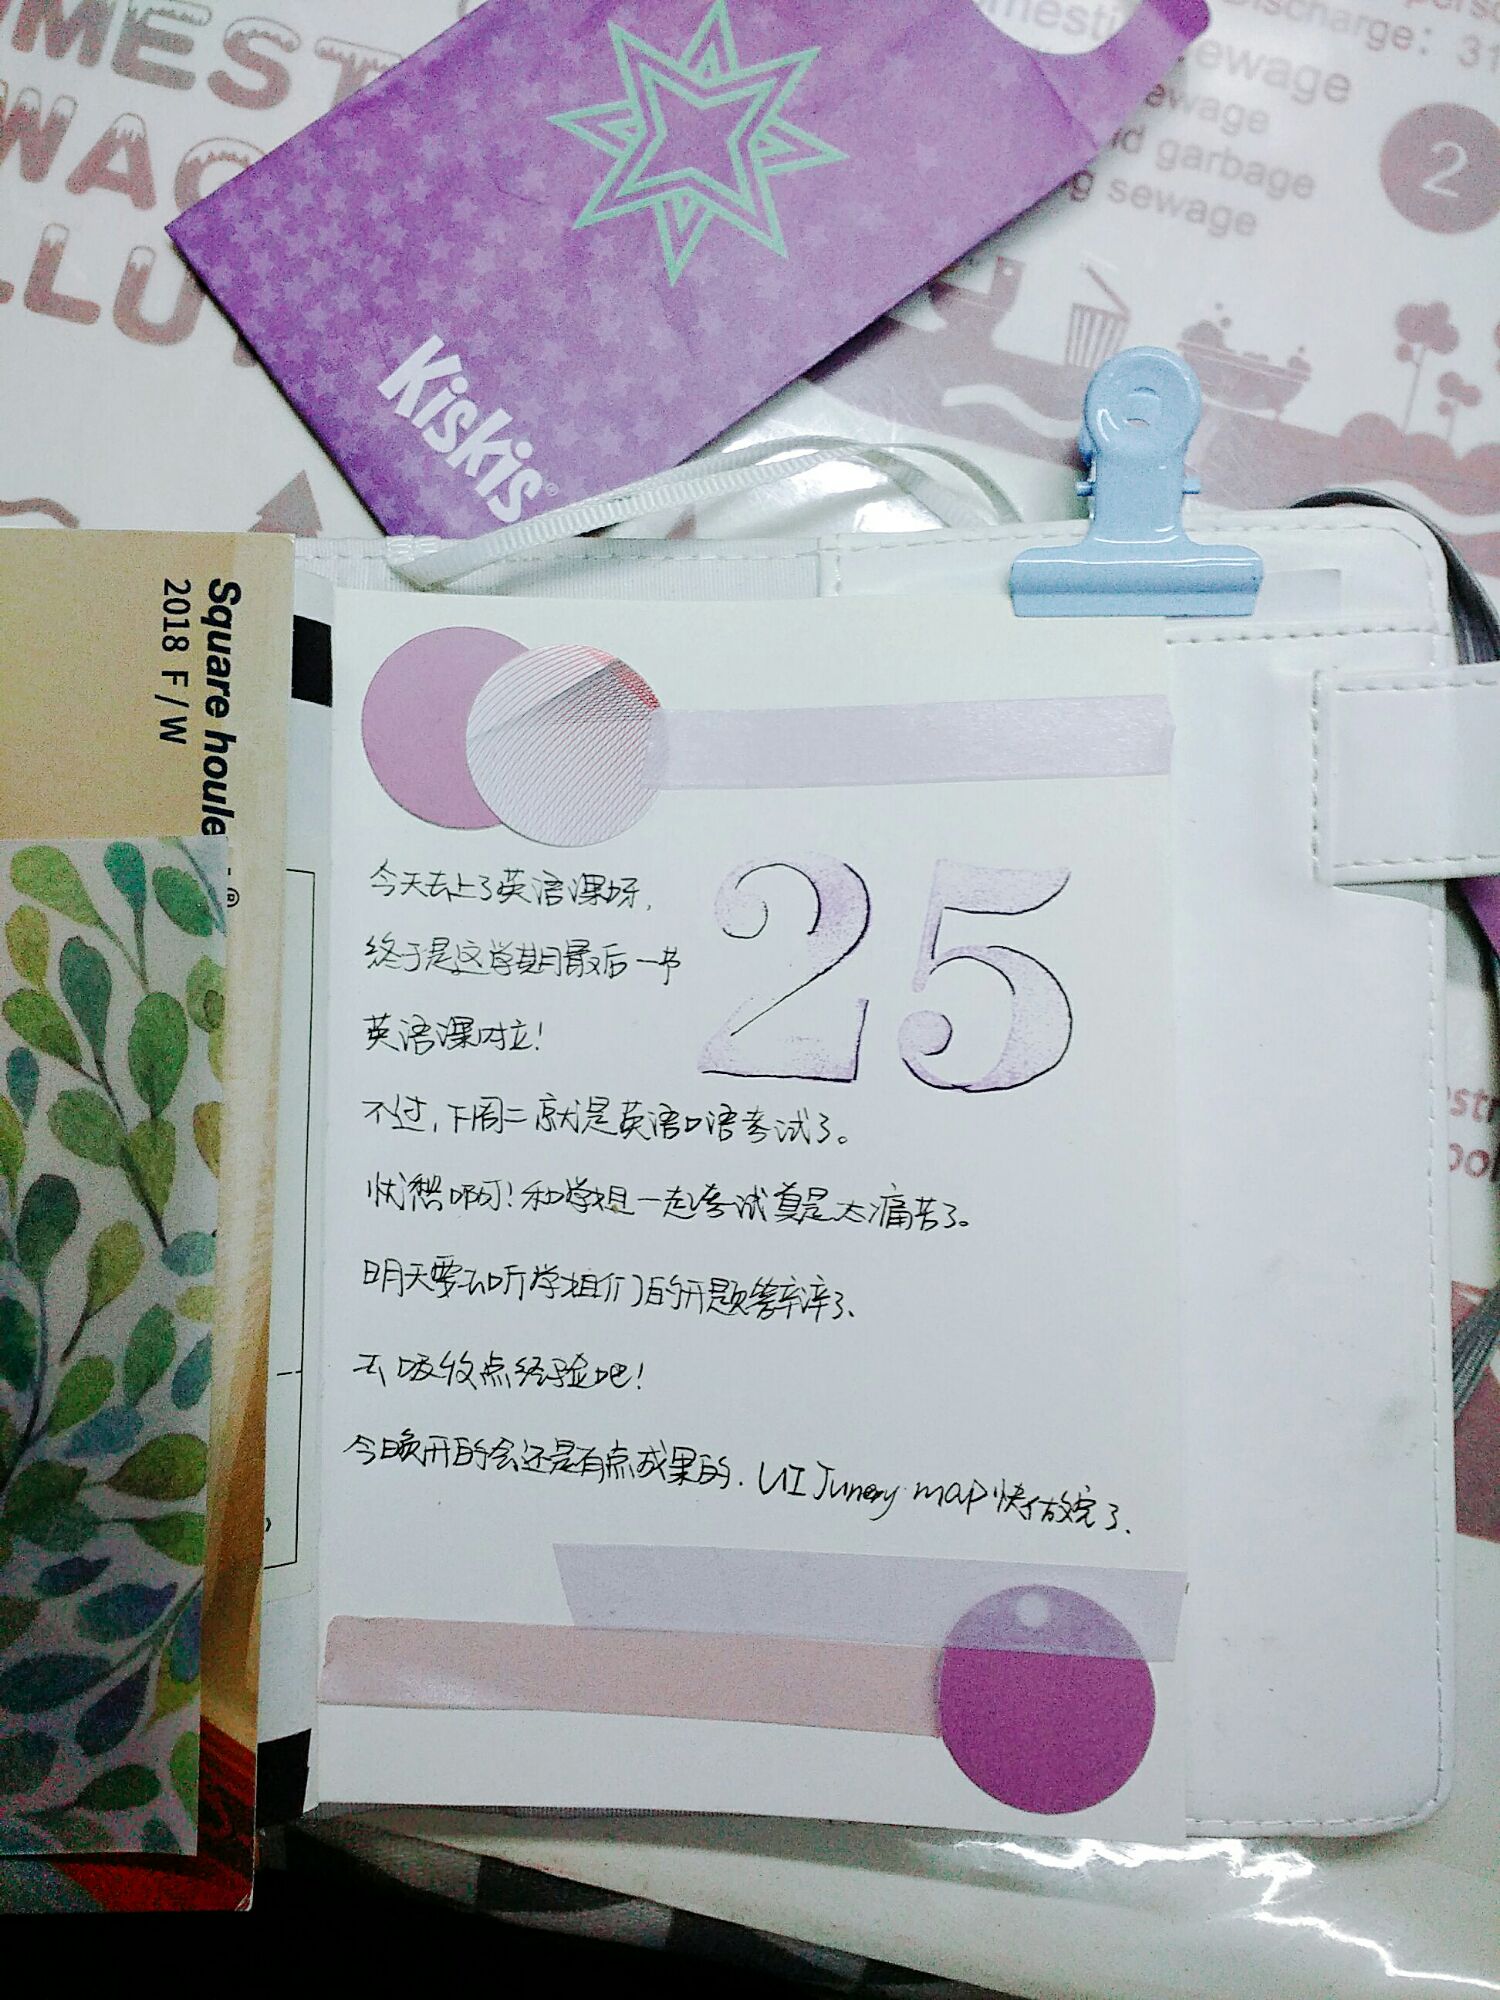 MEST
WAG
LLU
Discharge: 31
mesti
sewage
ewage
d garbage
g sewage
2
Kiskis®
Square houle
2018 F/W
25
今天去上了英语课呀,
终于是这学期最后一节
英语课对立!
不过,下周二就是英语口语考试了。
忧愁啊!和学姐一起考试真是太痛苦了。
明天要去听学姐们的开题答辩了、
去吸收点经验吧!
今晚开的会还是有点成果的. UI Junery map 快做完了、